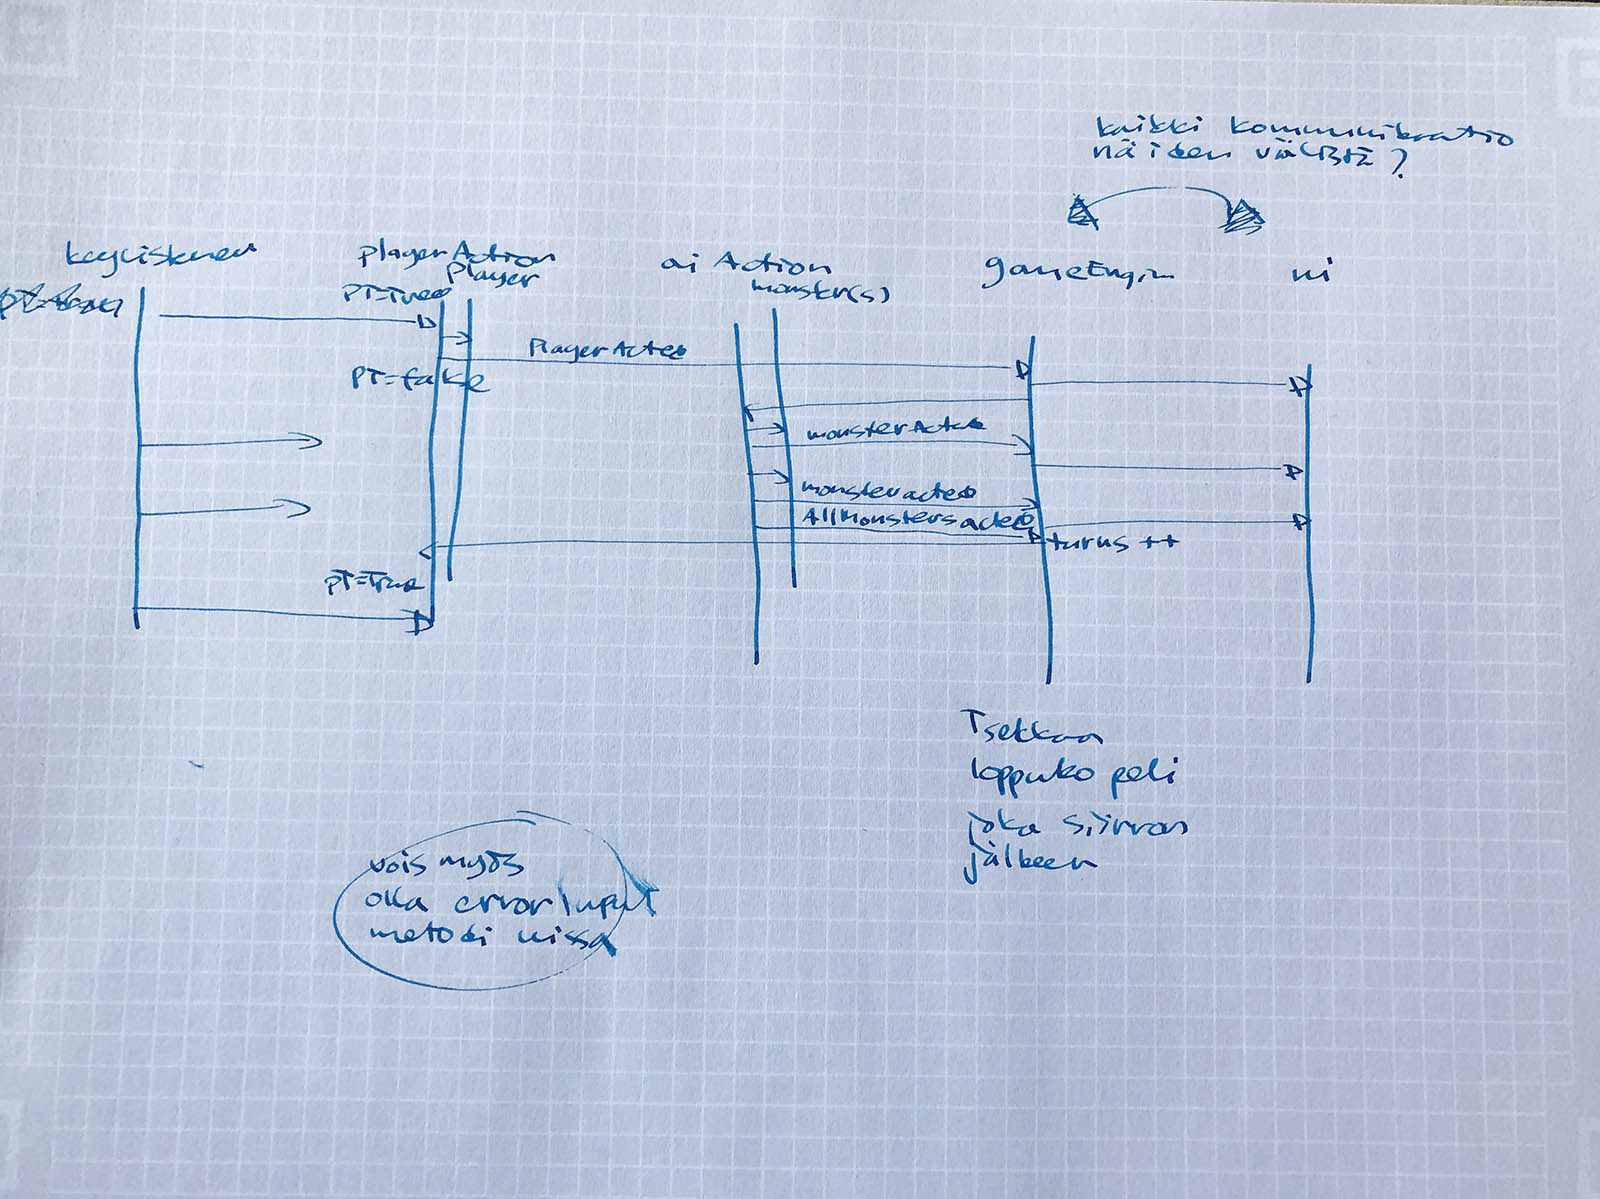 kaikki kommunikaatio
näiden välistä?
keyListener
playerAction
Player
ai Action
monster(s)
gameEngin
ui
PT=True
PlayerActed
PT=false
monsterActed
monsteracted
AllMonsters acted
turns ++
PT=True
Tsekkaa
loppuko peli
joka siirron
jälkeen
vois myös
olla errorInput
metodi uissa